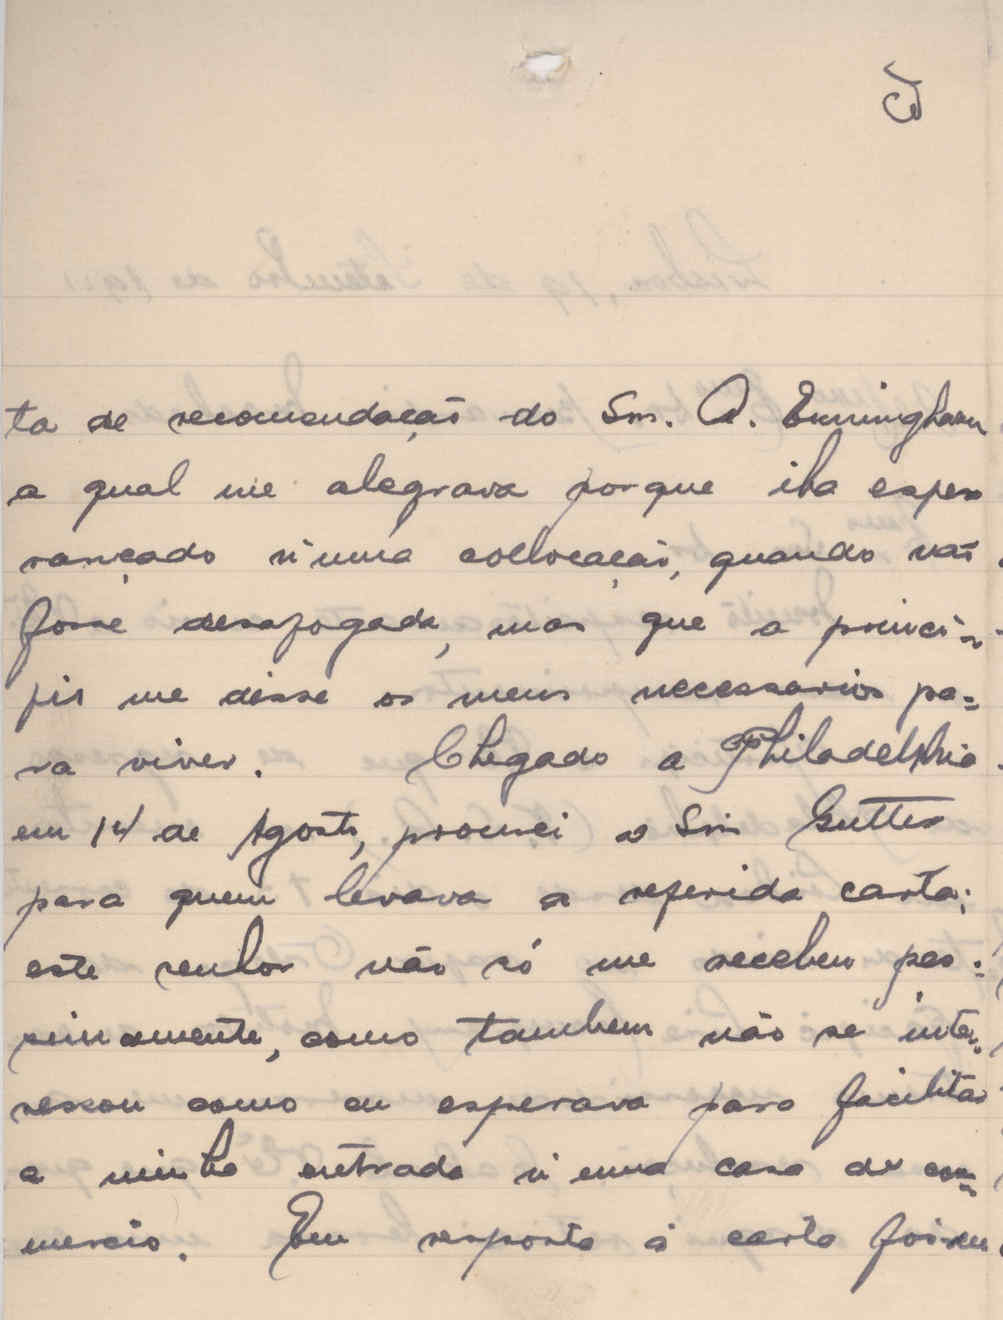 3
ta de recomendação do Snr. A. Enningham
a qual me alegrava porque iha espe=
rançado n'uma collocação, quando não
fosse desafogada, mas que a princi=
pio me désse os meus necessarios pa=
ra viver. Chegado a Philadelphia
em 14 de Agosto, procurei o Snr
para quem levava a referida carta;
este senhor não só me recebeu pes=
simamente, como tambem não se inte=
ressou como eu esperava para facilitar
a minha entrada n'uma casa de com=
mercio. Em resposta á carta foi-me